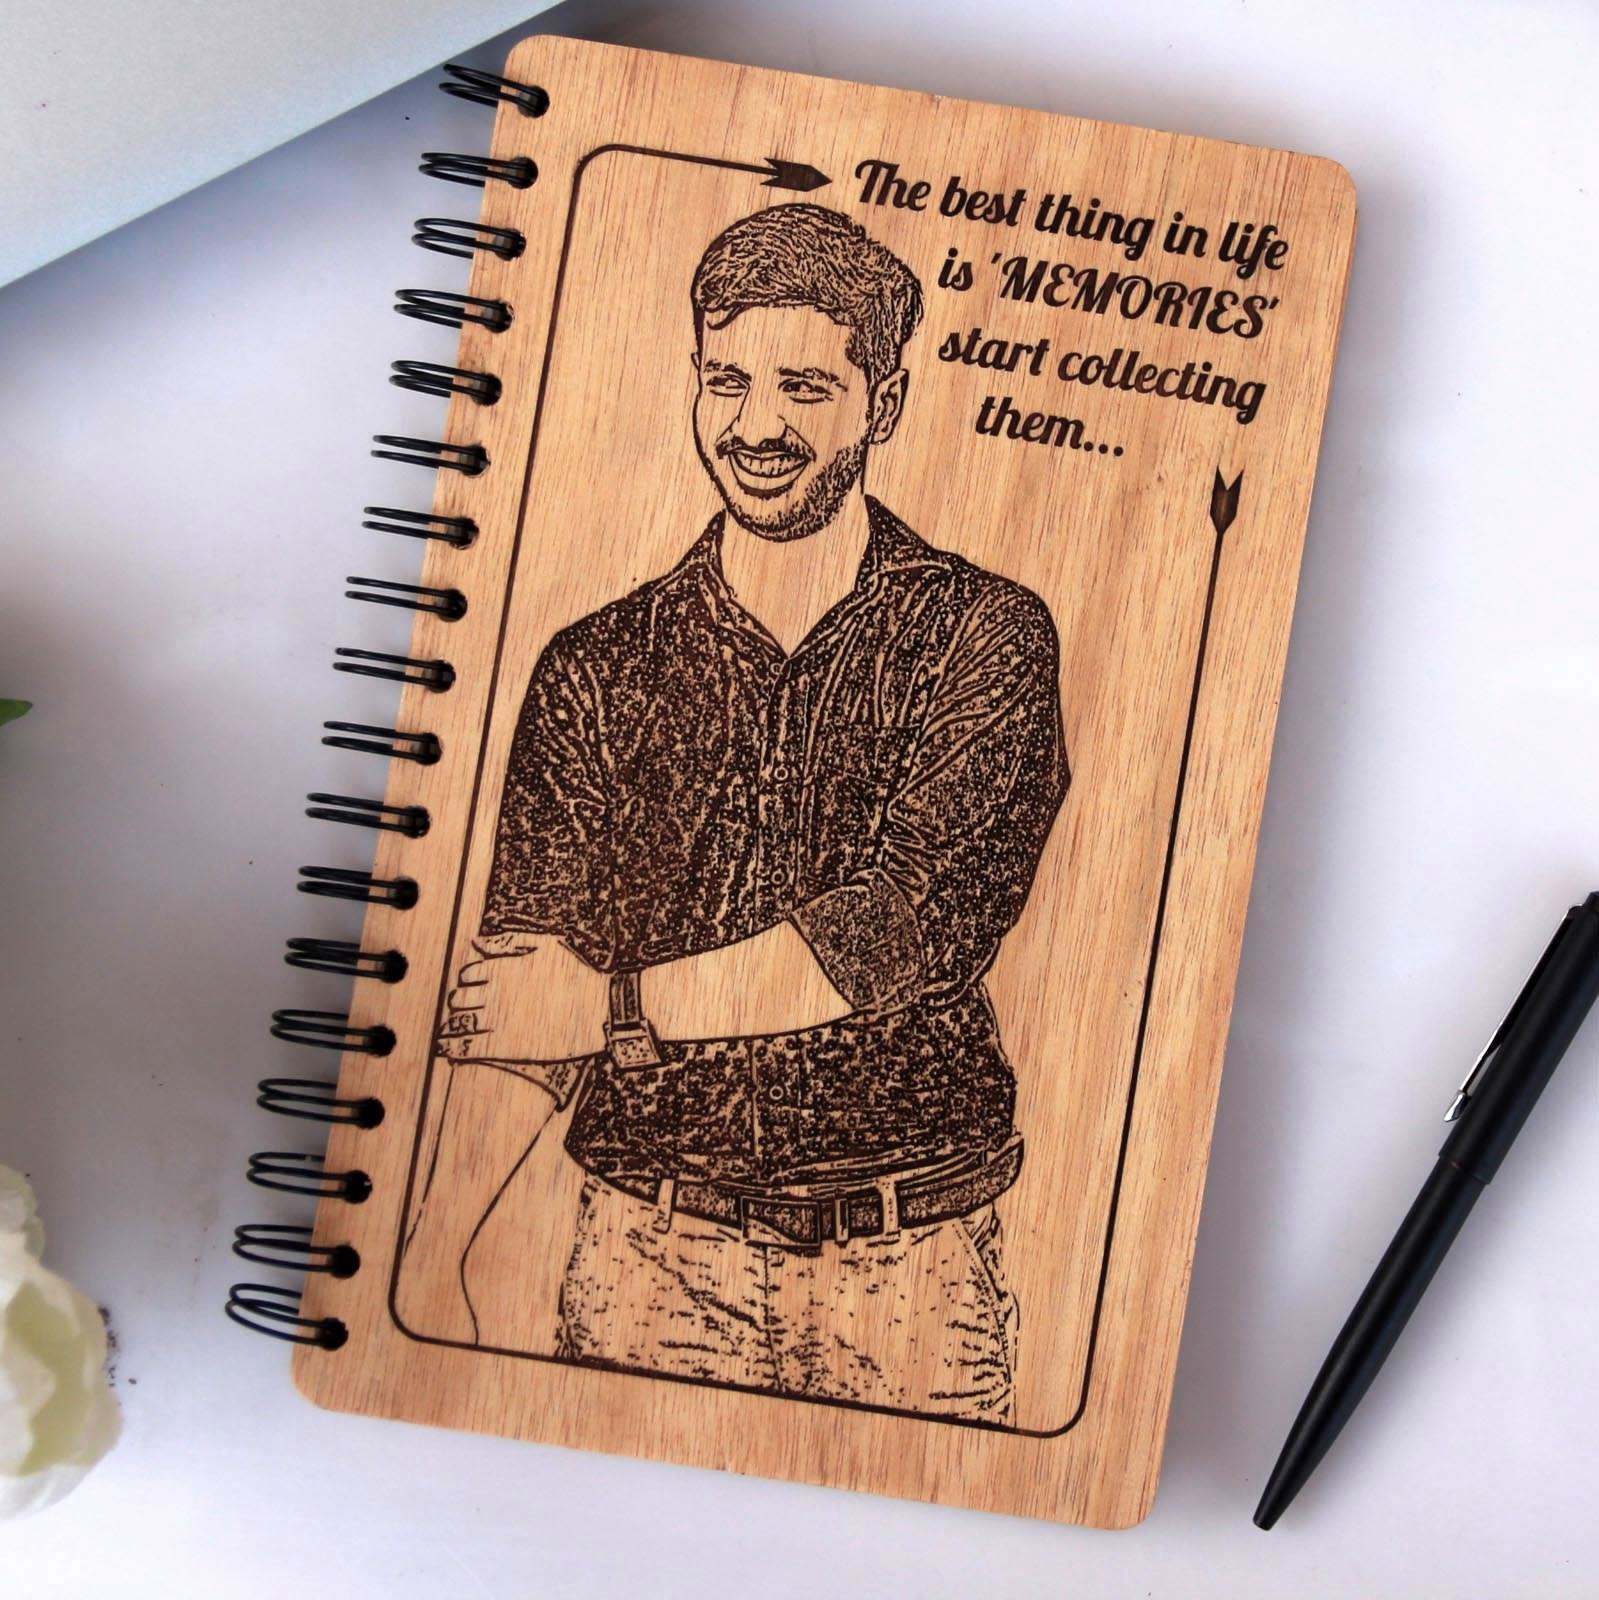 The best thing in life
is 'MEMORIES'
start collecting
them...